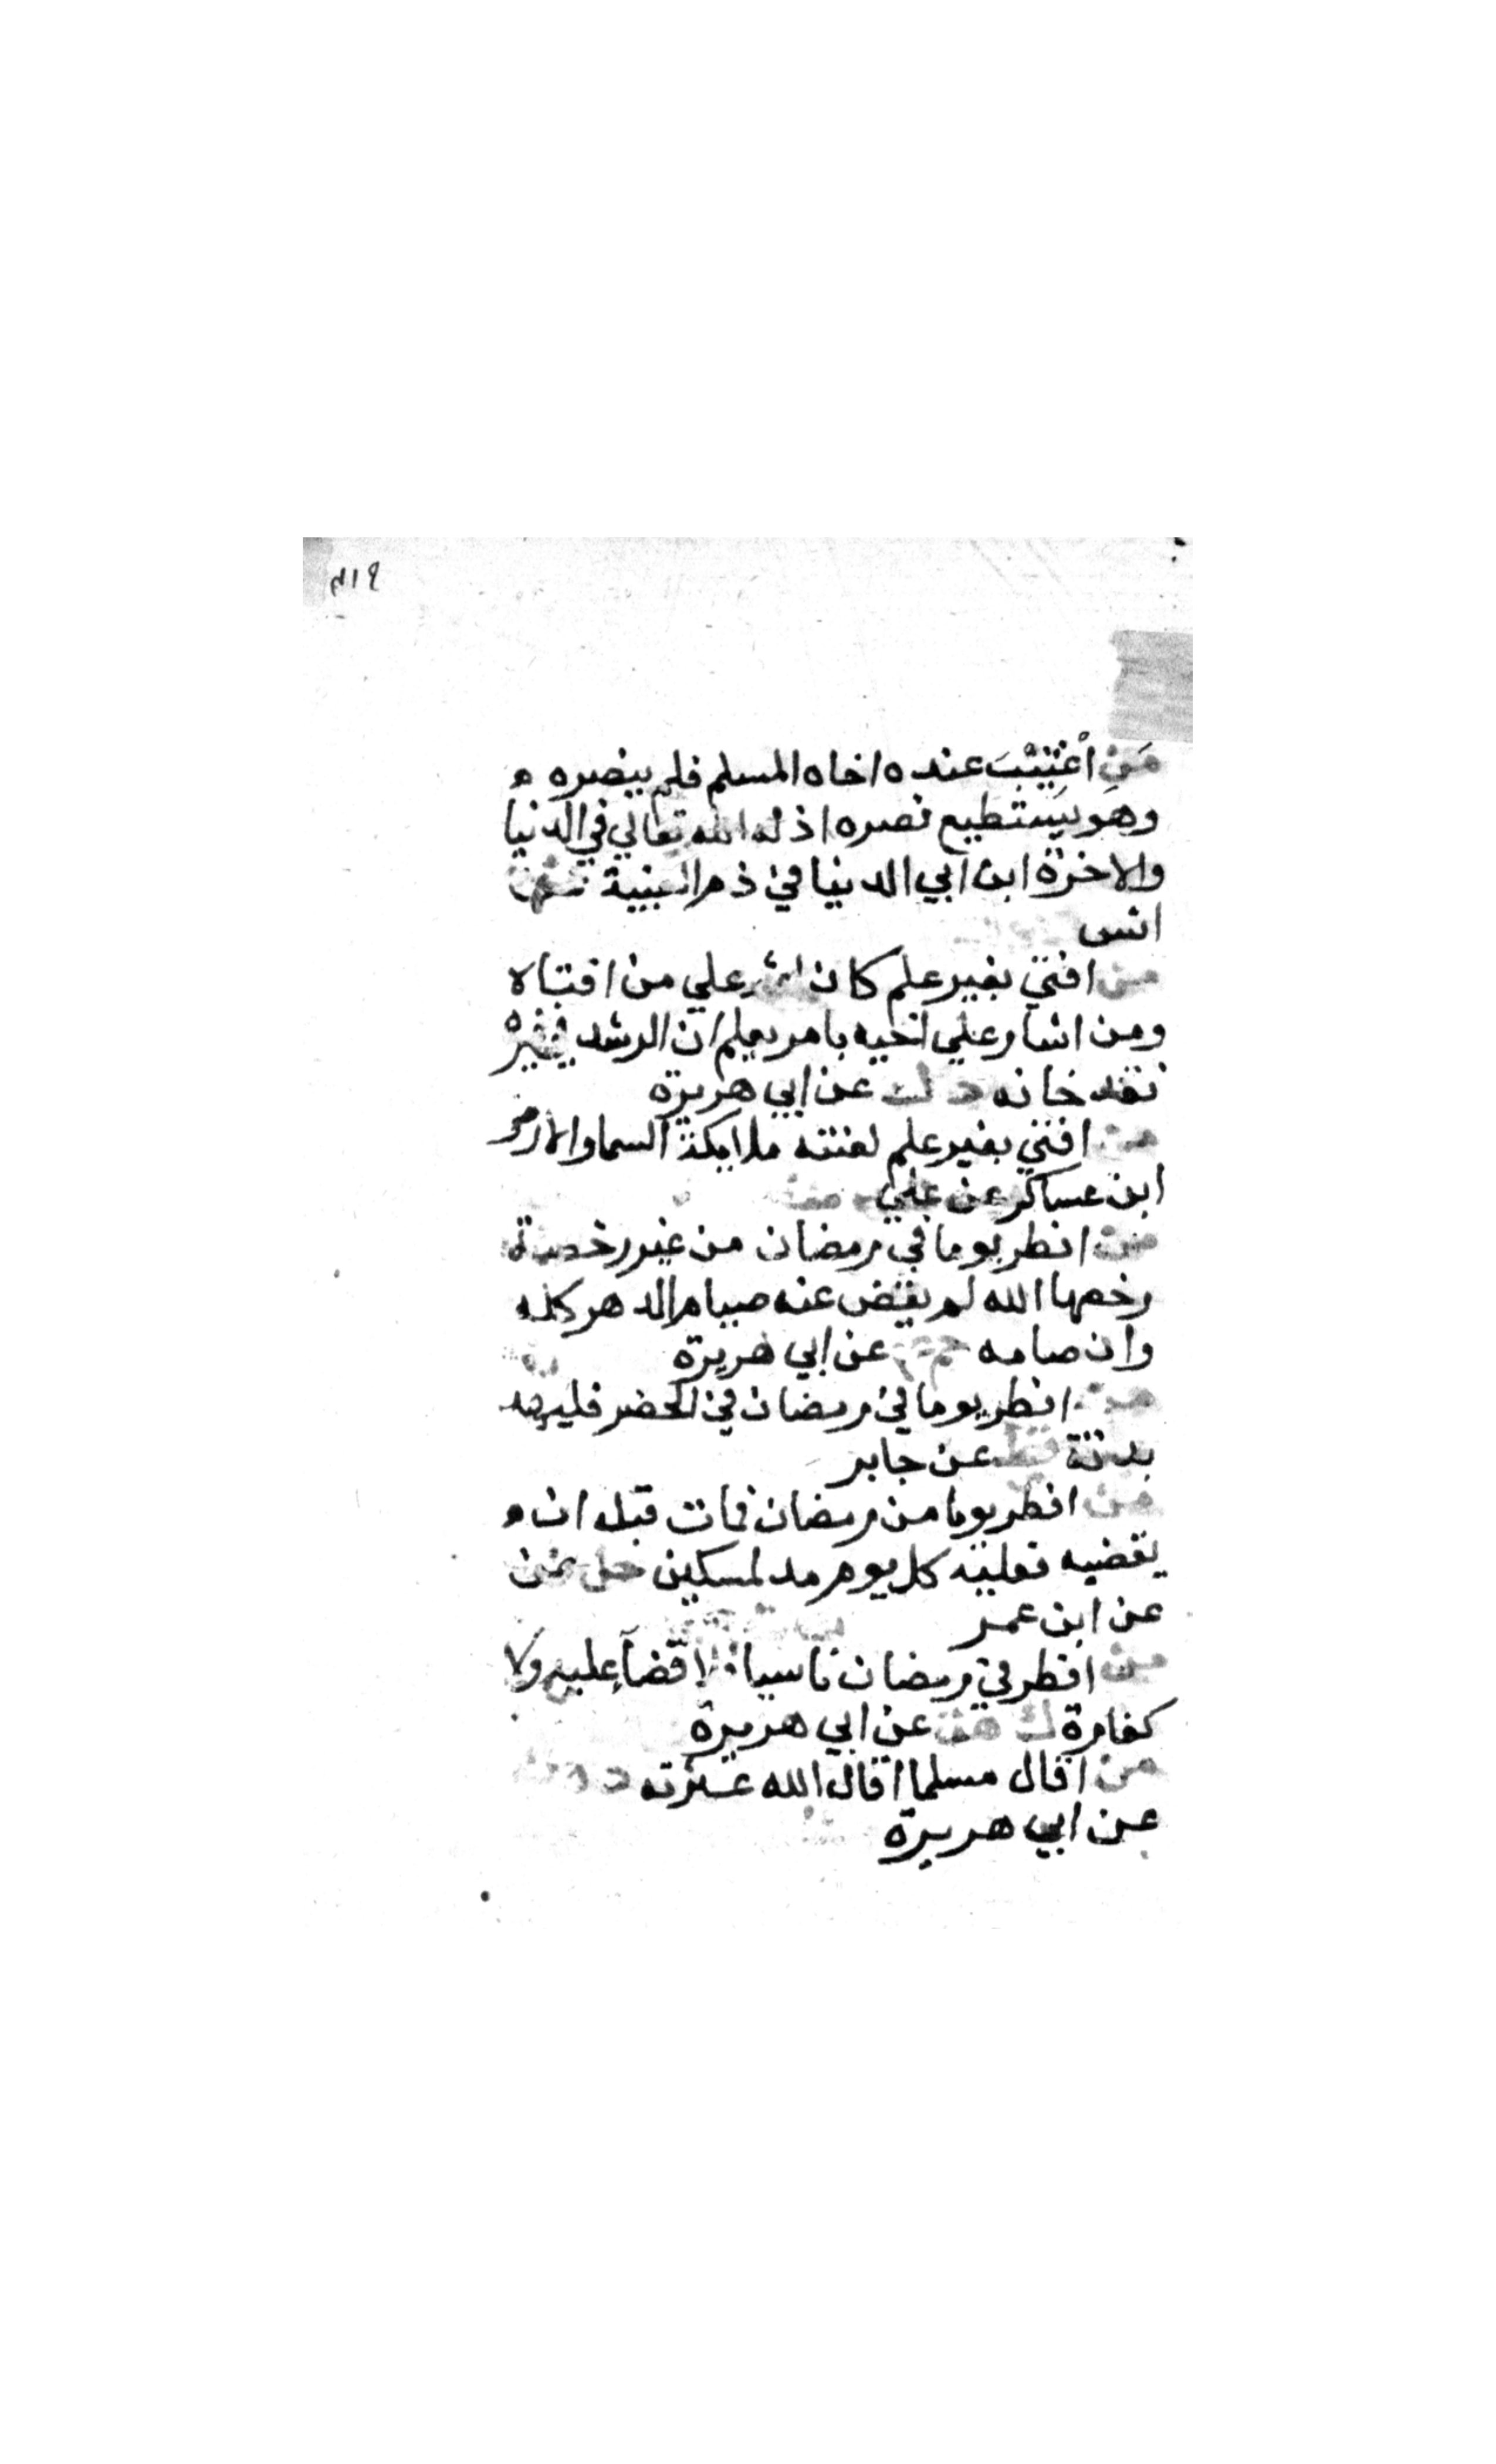 من اغتيب عنده اخاه المسلم فلم ينصره
وهو يستطيع نصره اذله الله تعالي في الدنيا
والاخرة ابن ابي الدنيا في ذم الغيبة عن
انس
من افتي بغير علم كان اثمه علي من افتاه
ومن اشار علي اخيه بامر يعلم ان الرشد في غيره
فقد خانه د ك عن ابي هريرة
من افتي بغير علم لعنته ملايكة السما والارض
ابن عساكر عن علي
من افطر يوما في رمضان من غير رخصة
رخصها الله لم يقض عنه صيام الدهر كله
وان صامه حم عن ابي هريرة
من افطر يوما في رمضان في الحضر فليهد
بدنة قط عن جابر
من افطر يوما من رمضان فمات قبل ان
يقضيه فعليه كل يوم مد لمسكين حل
عن ابن عمر
من افطر في رمضان ناسيا فلا قضآ عليه ولا
كفارة ك هق عن ابي هريرة
من اقال مسلما اقال الله عثرته د ه ك
عن ابي هريرة